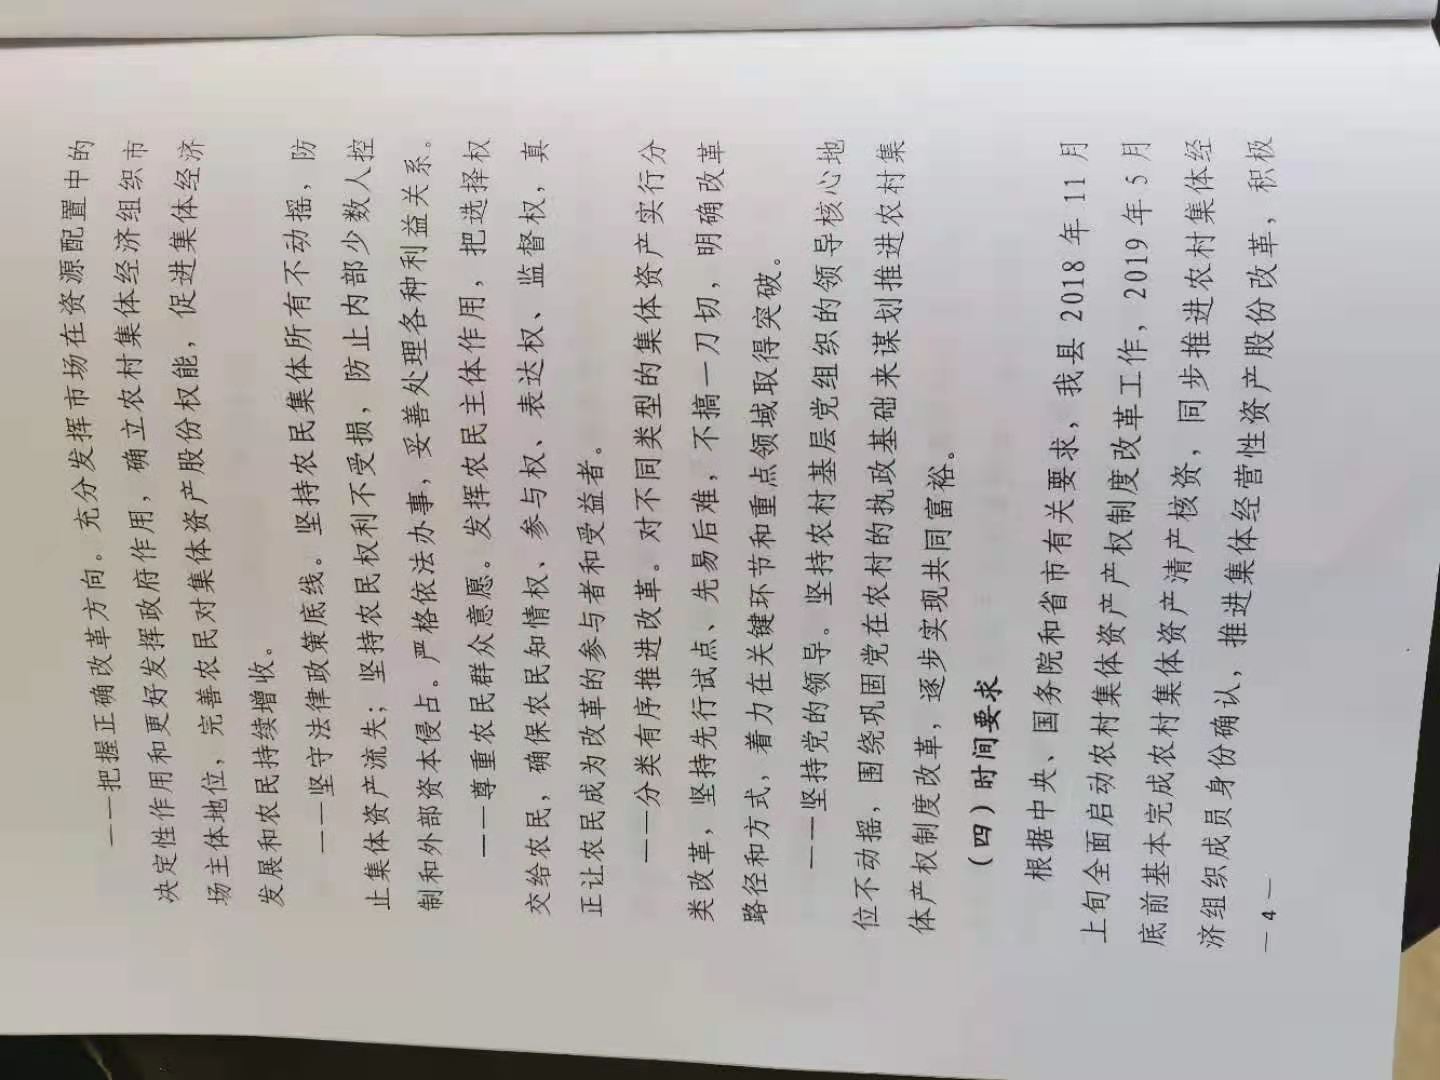 ——把握正确改革方向。充分发挥市场在资源配置中的
决定性作用和更好发挥政府作用，确立农村集体经济组织市
场主体地位，完善农民对集体资产股份权能，促进集体经济
发展和农民持续增收。
——坚守法律政策底线。坚持农民集体所有不动摇，防
止集体资产流失；坚持农民权利不受损，防止内部少数人控
制和外部资本侵占。严格依法办事，妥善处理各种利益关系。
——尊重农民群众意愿。发挥农民主体作用，把选择权
交给农民，确保农民知情权、参与权、表达权、监督权，真
正让农民成为改革的参与者和受益者。
——分类有序推进改革。对不同类型的集体资产实行分
类改革，坚持先行试点、先易后难，不搞一刀切，明确改革
路径和方式，着力在关键环节和重点领域取得突破。
——坚持党的领导。坚持农村基层党组织的领导核心地
位不动摇，围绕巩固党在农村的执政基础来谋划推进农村集
体产权制度改革，逐步实现共同富裕。
（四）时间要求
根据中央、国务院和省市有关要求，我县 2018 年 11 月
上旬全面启动农村集体资产产权制度改革工作，2019 年 5 月
底前基本完成农村集体资产清产核资，同步推进农村集体经
济组织成员身份确认，推进集体经营性资产股份改革，积极
— 4 —